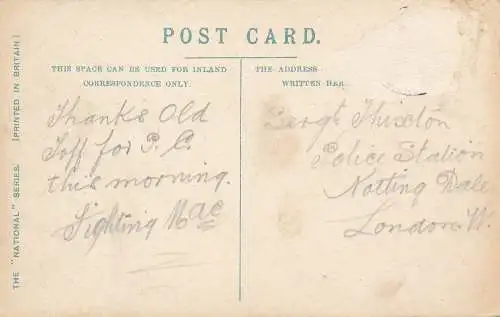 POST CARD.
THIS SPACE CAN BE USED FOR INLAND
CORRESPONDENCE ONLY.
THE ADDRESS
WRITTEN HER
THE "NATIONAL" SERIES. [PRINTED IN BRITAIN]
Thanks Old
Toff for P.C.
this morning.
Fighting Mac
Sergt Thiselton
Police Station
Notting Dale
London. W.